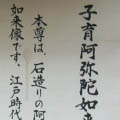 子育阿弥陀如来
本尊は、石造りの阿
如来像です。江戸時代